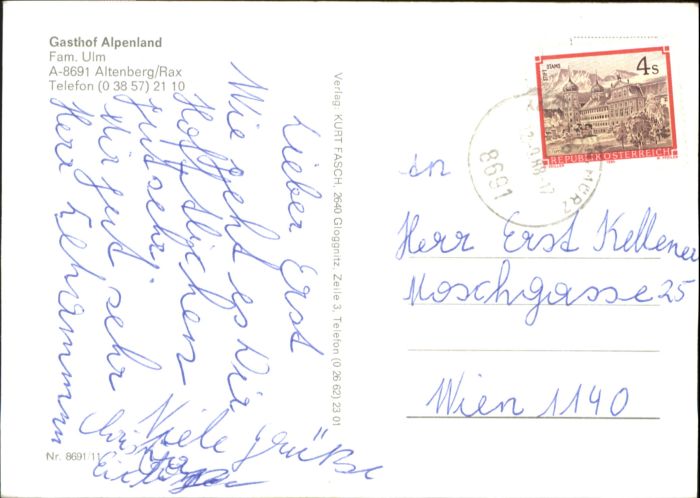 Gasthof Alpenland
Fam. Ulm
A-8691 Altenberg/Rax
Telefon (0 38 57) 21 10
Lieber Erst
Wie geht es Dir
Hoffentlichen
gut sehr
Mir gut sehr
Herr
Viele grüße
Nr. 8691/11
Verlag: KURT FASCH, 2640 Gloggnitz, Zeile 3, Telefon (0 26 62) 23 01
STIFT STAMS
4 S
REPUBLIK ÖSTERREICH
8691
MÜRZ
An
Herr Erst Kellener
Moschgasse 25
Wien 1140